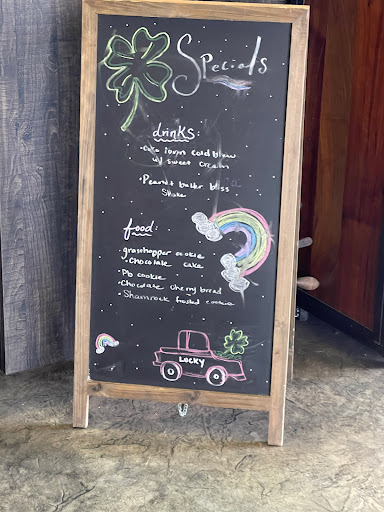 Specials
drinks:
• Coco loven cold brew
w/ sweet cream
• Peanut butter bliss
Shake
food:
• grasshopper cookie
• Chocolate cake
• Pb cookie
• Chocolate cherry bread
• Shamrock frosted cookie
LUCKY